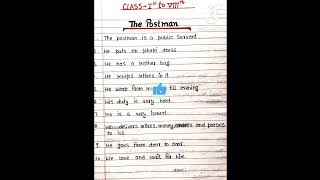 CLASS - Iˢᵗ to VIIIᵗʰ
The Postman
1. The postman is a public servant.
2. He puts on khaki dress
3. He has a leather bag.
4. He keeps letters in it
5. He work from till evening
6. His duty is very hard.
7. He is a very honest
8. He delivers letters, money orders and parcels
to us.
9. He goes from door to door.
10. We love and wait for him.